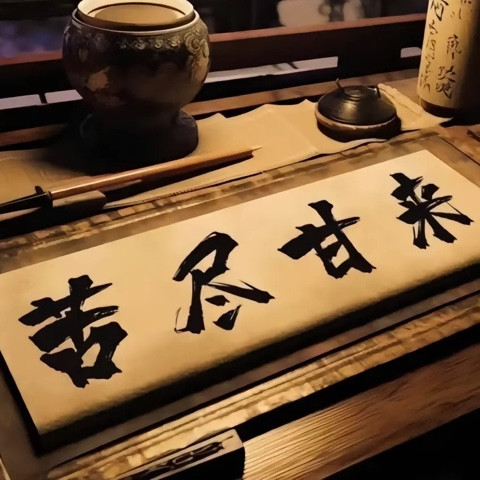 苦尽甘来